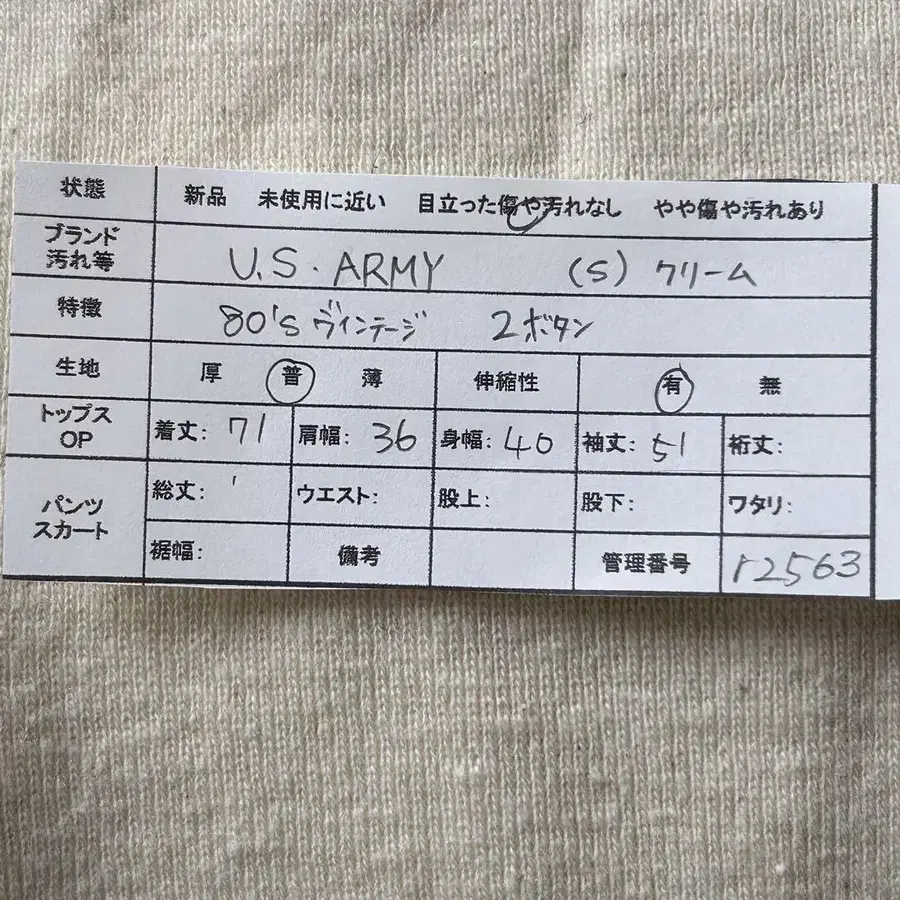 状態 新品 未使用に近い 目立った傷や汚れなし やや傷や汚れあり
ブランド
汚れ等 U.S.ARMY (S) クリーム
特徴 80's ヴィンテージ 2ボタン
生地 厚 普 薄 伸縮性 有 無
トップス
OP 着丈: 71 肩幅: 36 身幅: 40 袖丈: 51 裄丈:
パンツ
スカート 総丈: ウエスト: 股上: 股下: ワタリ:
裾幅: 備考 管理番号 r2563